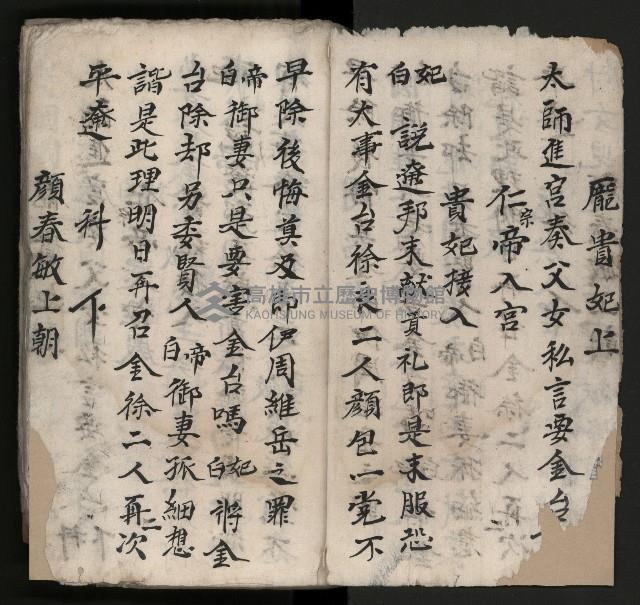 龐貴妃上
太師進宮奏父女私言要金台
仁宗帝入宮
貴妃接入
妃白 說遼邦未敢貢礼即是未服恐
有大事金台徐 二人顏包一党不
早除後悔莫及 伊周維岳之罪
帝白 御妻只是要害金台嗎 妃白 將金
台除却另委賢人 帝白 御妻孤細想
諧是此理明日再召金徐二人再次
平遼 科 下
顏春敏上朝
高雄市立歷史博物館
KAOHSIUNG MUSEUM OF HISTORY